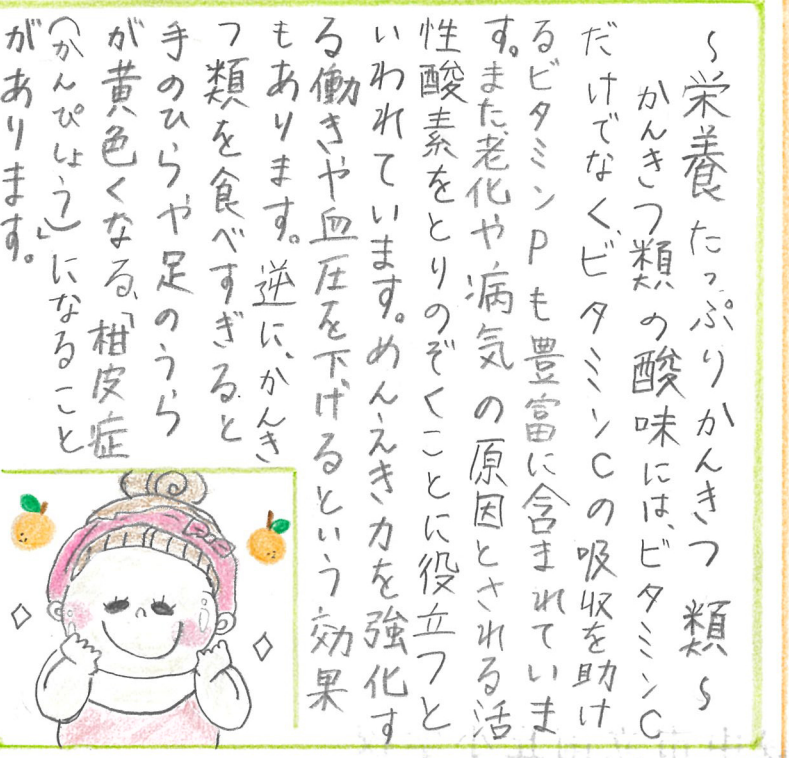 ～栄養たっぷりかんきつ類～
かんきつ類の酸味には、ビタミンC
だけでなく、ビタミンCの吸収を助け
るビタミンPも豊富に含まれていま
す。また、老化や病気の原因とされる活
性酸素をとりのぞくことに役立つと
いわれています。めんえき力を強化す
る働きや血圧を下げるという効果
もあります。逆に、かんき
つ類を食べすぎると
手のひらや足のうら
が黄色くなる、「柑皮症
（かんぴしょう）」になること
があります。